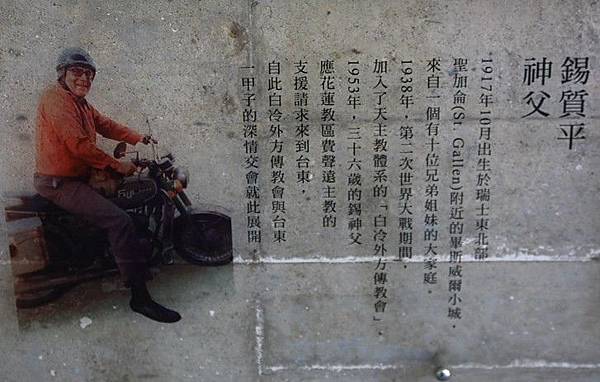 錫質平
神父
1917年10月出生於瑞士東北部
聖加侖(St. Gallen)附近的畢斯威爾小城，
來自一個有十位兄弟姐妹的大家庭。
1938年，第二次世界大戰期間，
加入了天主教體系的「白冷外方傳教會」，
1953年，三十六歲的錫神父
應花蓮教區費聲遠主教的
支援請求來到台東，
自此白冷外方傳教會與台東
一甲子的深情交會就此展開。